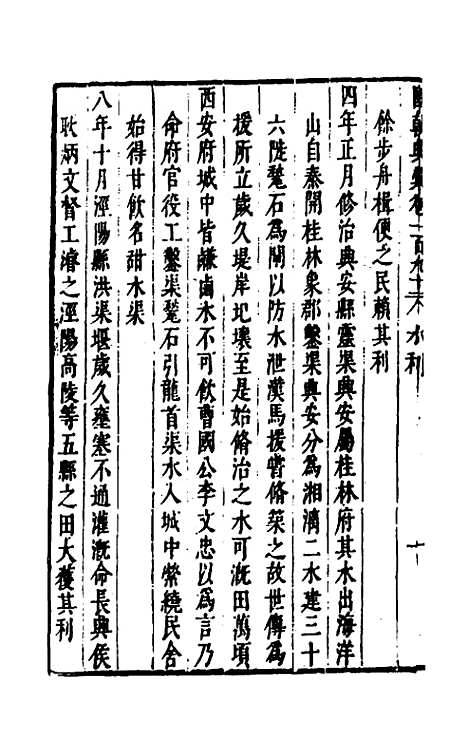 國朝典彙卷一百九十六 水利 十
餘步舟楫便之民賴其利
四年正月修治興安縣靈渠興安屬桂林府其水出海洋
山自秦開桂林象郡鑿渠興安分爲湘漓二水建三十
六陡甃石爲閘以防水泄漢馬援嘗脩築之故世傳爲
援所立歲久堤岸圮壞至是始脩治之水可漑田萬頃
西安府城中皆鹻鹵水不可飲曹國公李文忠以爲言乃
命府官役工鑿渠甃石引龍首渠水入城中縈繞民舍
始得甘飲名甜水渠
八年十月涇陽縣洪渠堰歲久壅塞不通灌漑命長興侯
耿炳文督工濬之涇陽高陵等五縣之田大獲其利